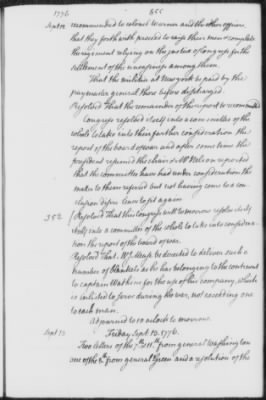 1776
800
Sept 12 recommended to colonel Warner and the other officers
that they forthwith proceed to raise their men & complete
the regiment relying on the justice of Congress for the
settlement of the uneasiness among them.
That the militia at New york be paid by the
paymaster general there before discharged.
Resolved That the remainder of the report be recommitted
Congress resolved itself into a committee of the
whole to take into their farther consideration the
report of the board of war and after some time the
president resumed the chair & Mr Nelson reported
that the committee have had under consideration the
matter to them referred but not having come to a con-
clusion desire leave to sit again
352 Resolved That this Congress will to morrow resolve itself
into a committee of the whole to take into considera-
tion the report of the board of war.
Resolved That Mr Mease be directed to deliver such a
number of blankets as he has belonging to the continent
to captain Watkins for the use of his company, which
is inlisted to serve during the war, not exceeding one
to each man.
Adjourned to 10 o'clock to morrow.
Sept 13 Friday Sept 13. 1776.
Two letters of the 7th & 11th from general Washington
one of the 8th from general Green and a resolution of the